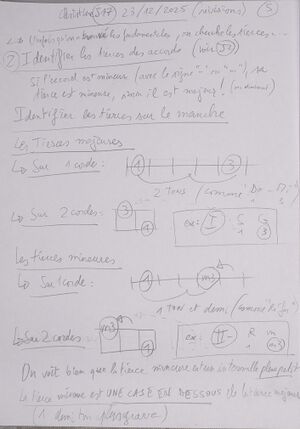 (J17) 23/12/2025 (révisions) (5)
→ Une fois qu'on a trouvé les fondamentales, on cherche les tierces...
② Identifier les tierces des accords (voir J2)
Si l'accord est mineur (avec le signe "-" ou "m"), sa
tierce est mineure, sinon il est majeur!
Identifier les tierces sur le manche
Les Tierces majeures
↳ Sur 1 corde: 1 3
2 Tons (comme Do - Mi)
↳ Sur 2 cordes: 3 1 ex: I 1 3
Les tierces mineures
↳ Sur 1 corde: 1 m3
1 ton et demi (comme
↳ Sur 2 cordes: m3 1 ex: II- R m 1 m3
On voit bien que la tierce mineure est un intervalle plus petit
La tierce mineure est UNE CASE EN DESSOUS de la tierce majeure
(1 demi ton plus grave)